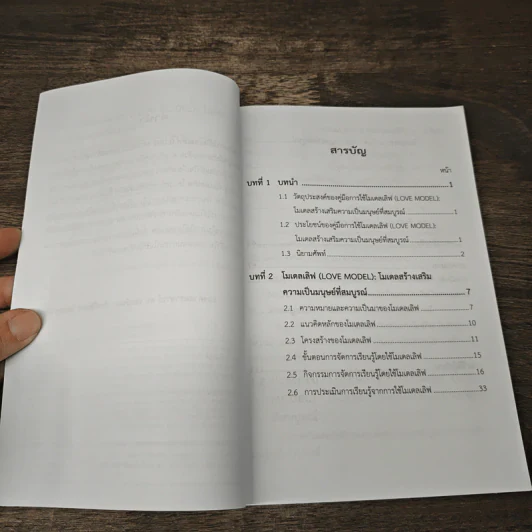 สารบัญ
หน้า
บทที่ 1 บทนำ ........................................................................1
1.1 วัตถุประสงค์ของคู่มือการใช้โมเดลเลิฟ (LOVE MODEL):
โมเดลสร้างเสริมความเป็นมนุษย์ที่สมบูรณ์ ........................1
1.2 ประโยชน์ของคู่มือการใช้โมเดลเลิฟ (LOVE MODEL):
โมเดลสร้างเสริมความเป็นมนุษย์ที่สมบูรณ์ ........................1
1.3 นิยามศัพท์ ................................................................2
บทที่ 2 โมเดลเลิฟ (LOVE MODEL): โมเดลสร้างเสริม
ความเป็นมนุษย์ที่สมบูรณ์................................................7
2.1 ความหมายและความเป็นมาของโมเดลเลิฟ ........................7
2.2 แนวคิดหลักของโมเดลเลิฟ ............................................10
2.3 โครงสร้างของโมเดลเลิฟ ..............................................11
2.4 ขั้นตอนการจัดการเรียนรู้โดยใช้โมเดลเลิฟ ........................15
2.5 กิจกรรมการจัดการเรียนรู้โดยใช้โมเดลเลิฟ ........................16
2.6 การประเมินการเรียนรู้จากการใช้โมเดลเลิฟ ......................33